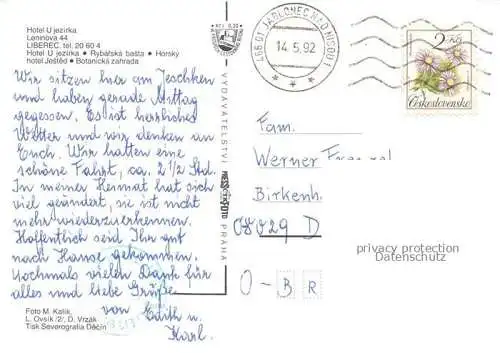 Hotel U jezírka
Leninova 44
LIBEREC, tel. 20 60 4
Hotel U jezírka ● Rybářská bašta ● Horský
hotel Ještěd ● Botanická zahrada
Wir sitzen hier am Jeschken
und haben gerade Mittag
gegessen. Es ist herrliches
Wetter und wir denken an
Euch. Wir hatten eine
schöne Fahrt, ca. 2 1/2 Std.
In meiner Heimat hat sich
viel geändert, sie ist nicht
mehr wiederzuerkennen.
Hoffentlich seid Ihr gut
nach Hause gekommen.
Nochmals vielen Dank für
alles und liebe Grüße
von Edith u.
Karl.
Foto M. Kalík,
L. Ovsík /2/, D. Vrzák
Tisk Severografia Děčín
VYDAVATELSTVÍ PRESSFOTO PRAHA
466 01 JABLONEC NAD NISOU 1
14.5.92
2 Kčs
Československo
Fam.
Werner
Birkenh.
O8029 D
O-BR
privacy protection
Datenschutz